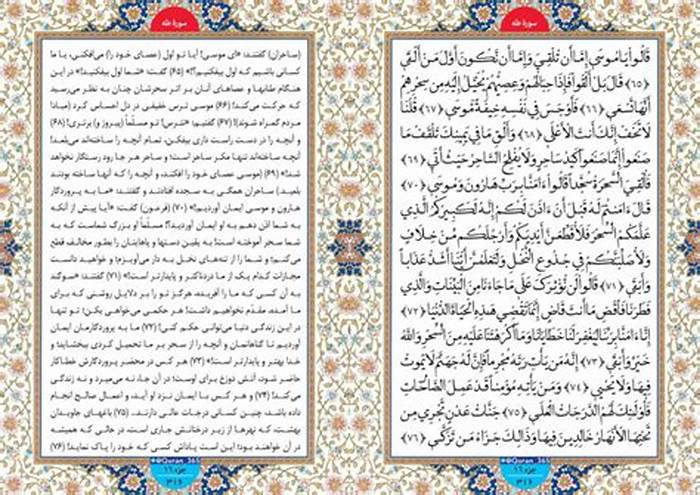 سورهٔ طه
قَالُوا يَا مُوسَى إِمَّا أَن تُلْقِيَ وَإِمَّا أَن نَّكُونَ أَوَّلَ مَنْ أَلْقَى
﴿٦٥﴾ قَالَ بَلْ أَلْقُوا فَإِذَا حِبَالُهُمْ وَعِصِيُّهُمْ يُخَيَّلُ إِلَيْهِ مِن سِحْرِهِمْ
أَنَّهَا تَسْعَى ﴿٦٦﴾ فَأَوْجَسَ فِي نَفْسِهِ خِيفَةً مُّوسَى ﴿٦٧﴾ قُلْنَا
لَا تَخَفْ إِنَّكَ أَنتَ الْأَعْلَى ﴿٦٨﴾ وَأَلْقِ مَا فِي يَمِينِكَ تَلْقَفْ مَا
صَنَعُوا إِنَّمَا صَنَعُوا كَيْدُ سَاحِرٍ وَلَا يُفْلِحُ السَّاحِرُ حَيْثُ أَتَى ﴿٦٩﴾
فَأُلْقِيَ السَّحَرَةُ سُجَّدًا قَالُوا ءَامَنَّا بِرَبِّ هَارُونَ وَمُوسَى ﴿٧٠﴾
قَالَ ءَامَنتُمْ لَهُ قَبْلَ أَنْ ءَاذَنَ لَكُمْ إِنَّهُ لَكَبِيرُكُمُ الَّذِي
عَلَّمَكُمُ السِّحْرَ فَلَأُقَطِّعَنَّ أَيْدِيَكُمْ وَأَرْجُلَكُم مِّنْ خِلَافٍ
وَلَأُصَلِّبَنَّكُمْ فِي جُذُوعِ النَّخْلِ وَلَتَعْلَمُنَّ أَيُّنَا أَشَدُّ عَذَابًا
وَأَبْقَى ﴿٧١﴾ قَالُوا لَن نُّؤْثِرَكَ عَلَى مَا جَاءَنَا مِنَ الْبَيِّنَاتِ وَالَّذِي
فَطَرَنَا فَاقْضِ مَا أَنتَ قَاضٍ إِنَّمَا تَقْضِي هَذِهِ الْحَيَاةَ الدُّنْيَا ﴿٧٢﴾
إِنَّا ءَامَنَّا بِرَبِّنَا لِيَغْفِرَ لَنَا خَطَايَانَا وَمَا أَكْرَهْتَنَا عَلَيْهِ مِنَ السِّحْرِ وَاللَّهُ
خَيْرٌ وَأَبْقَى ﴿٧٣﴾ إِنَّهُ مَن يَأْتِ رَبَّهُ مُجْرِمًا فَإِنَّ لَهُ جَهَنَّمَ لَا يَمُوتُ
فِيهَا وَلَا يَحْيَى ﴿٧٤﴾ وَمَن يَأْتِهِ مُؤْمِنًا قَدْ عَمِلَ الصَّالِحَاتِ
فَأُولَئِكَ لَهُمُ الدَّرَجَاتُ الْعُلَى ﴿٧٥﴾ جَنَّاتُ عَدْنٍ تَجْرِي مِن
تَحْتِهَا الْأَنْهَارُ خَالِدِينَ فِيهَا وَذَلِكَ جَزَاءُ مَن تَزَكَّى ﴿٧٦﴾
@Quran_365
جزء ۱۶
۳۱۶
سورهٔ طه
(ساحران) گفتند: «ای موسی! آیا تو اول (عصای خود را) می‌افکنی، یا ما
کسانی باشیم که اول بیفکنیم؟!» (۶۵) گفت: «شما اول بیفکنید!» در این
هنگام طنابها و عصاهای آنان بر اثر سحرشان چنان به نظر می‌رسید
که حرکت می‌کند! (۶۶) موسی ترس خفیفی در دل احساس کرد (مبادا
مردم گمراه شوند)! (۶۷) گفتیم: «نترس! تو مسلّماً (پیروز و) برتری! (۶۸)
و آنچه را در دست راست داری بیفکن، تمام آنچه را ساخته‌اند می‌بلعد!
آنچه ساخته‌اند تنها مکر ساحر است؛ و ساحر هر جا رود رستگار نخواهد
شد!» (۶۹) (موسی عصای خود را افکند، و آنچه را که آنها ساخته بودند
بلعید.) ساحران همگی به سجده افتادند و گفتند: «ما به پروردگار
هارون و موسی ایمان آوردیم!» (۷۰) (فرعون) گفت: «آیا پیش از آنکه
به شما اذن دهم به او ایمان آوردید؟! مسلّماً او بزرگ شماست که به
شما سحر آموخته است! به یقین دستها و پاهایتان را بطور مخالف قطع
می‌کنم؛ و شما را از تنه‌های نخل به دار می‌آویزم؛ و خواهید دانست
مجازات کدام یک از ما دردناکتر و پایدارتر است!» (۷۱) گفتند: «سوگند
به آن کسی که ما را آفریده، هرگز تو را بر دلایل روشنی که برای
ما آمده، مقدّم نخواهیم داشت! هر حکمی می‌خواهی بکن؛ تو تنها
در این زندگی دنیا می‌توانی حکم کنی! (۷۲) ما به پروردگارمان ایمان
آوردیم تا گناهانمان و آنچه را از سحر بر ما تحمیل کردی ببخشاید؛ و
خدا بهتر و پایدارتر است!» (۷۳) هر کس در محضر پروردگارش خطاکار
حاضر شود، آتش دوزخ برای اوست؛ در آن جا، نه می‌میرد و نه زندگی
می‌کند! (۷۴) و هر کس با ایمان نزد او آید، و اعمال صالح انجام
داده باشد، چنین کسانی درجات عالی دارند.. (۷۵) باغهای جاویدان
بهشت، که نهرها از زیر درختانش جاری است، در حالی که همیشه
در آن خواهند بود؛ این است پاداش کسی که خود را پاک نماید! (۷۶)
@Quran_365
جزء ۱۶
۳۱۶